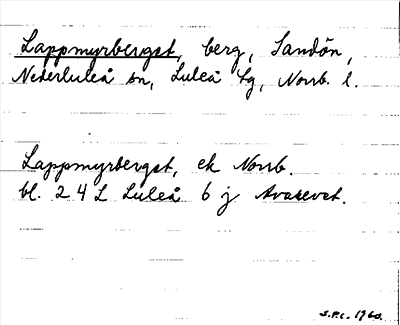 Lappmyrberget, berg, Sandön,
Nederluleå sn, Luleå tg, Norrb. l.
Lappmyrberget, ek Norrb.
bl. 24 L Luleå 6 j Avasevet.
S.P.C. 1960.